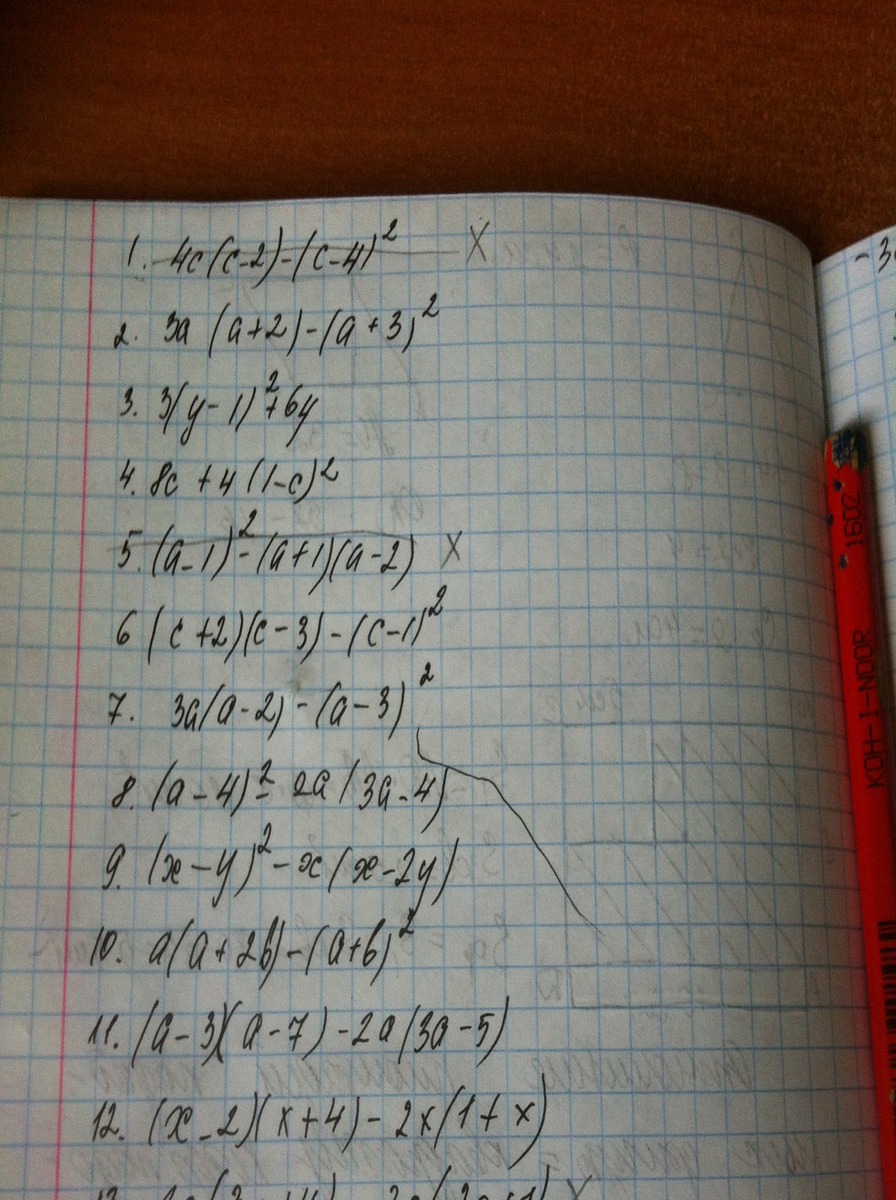 1. 4c(c-2)-(c-4)² X
2. 3a (a+2)-(a+3)²
3. 3(y-1)²+6y
4. 8c+4(1-c)²
5. (a-1)²-(a+1)(a-2) X
6 (c+2)(c-3)-(c-1)²
7. 3a(a-2)-(a-3)²
8. (a-4)²- 2a(3a-4)
9. (x-y)²-x(x-2y)
10. a(a+2b)-(a+b)²
11. (a-3)(a-7)-2a(3a-5)
12. (x-2)(x+4)-2x(1+x)
KOH-I-NOOR 1602